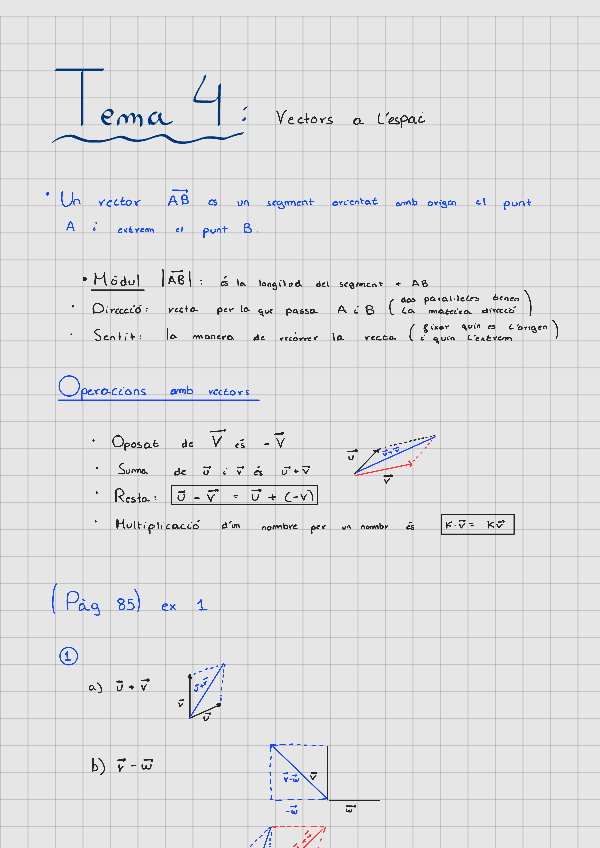 Tema 4: Vectors a l'espai
• Un vector AB⃗ és un segment orientat amb origen el punt
A i extrem el punt B.
• Mòdul |AB⃗|: és la longitud del segment + AB
· Direcció: recta per la que passa A i B (dos paral·leles tenen la mateixa direcció)
· Sentit: la manera de recórrer la recta (fixar quin és l'origen i quin l'extrem)
Operacions amb vectors
· Oposat de V⃗ és -V⃗
· Suma de u⃗ i v⃗ és u⃗+v⃗
u⃗
u+v
v⃗
· Resta: u⃗ - v⃗ = u⃗ + (-v)
· Multiplicació d'un nombre per un nombr és K·v⃗ = Kv⃗
(Pàg 85) ex 1
1
a) u⃗ + v⃗
v⃗
u+v
u⃗
b) v⃗ - w⃗
v-w
v⃗
-w⃗
w⃗